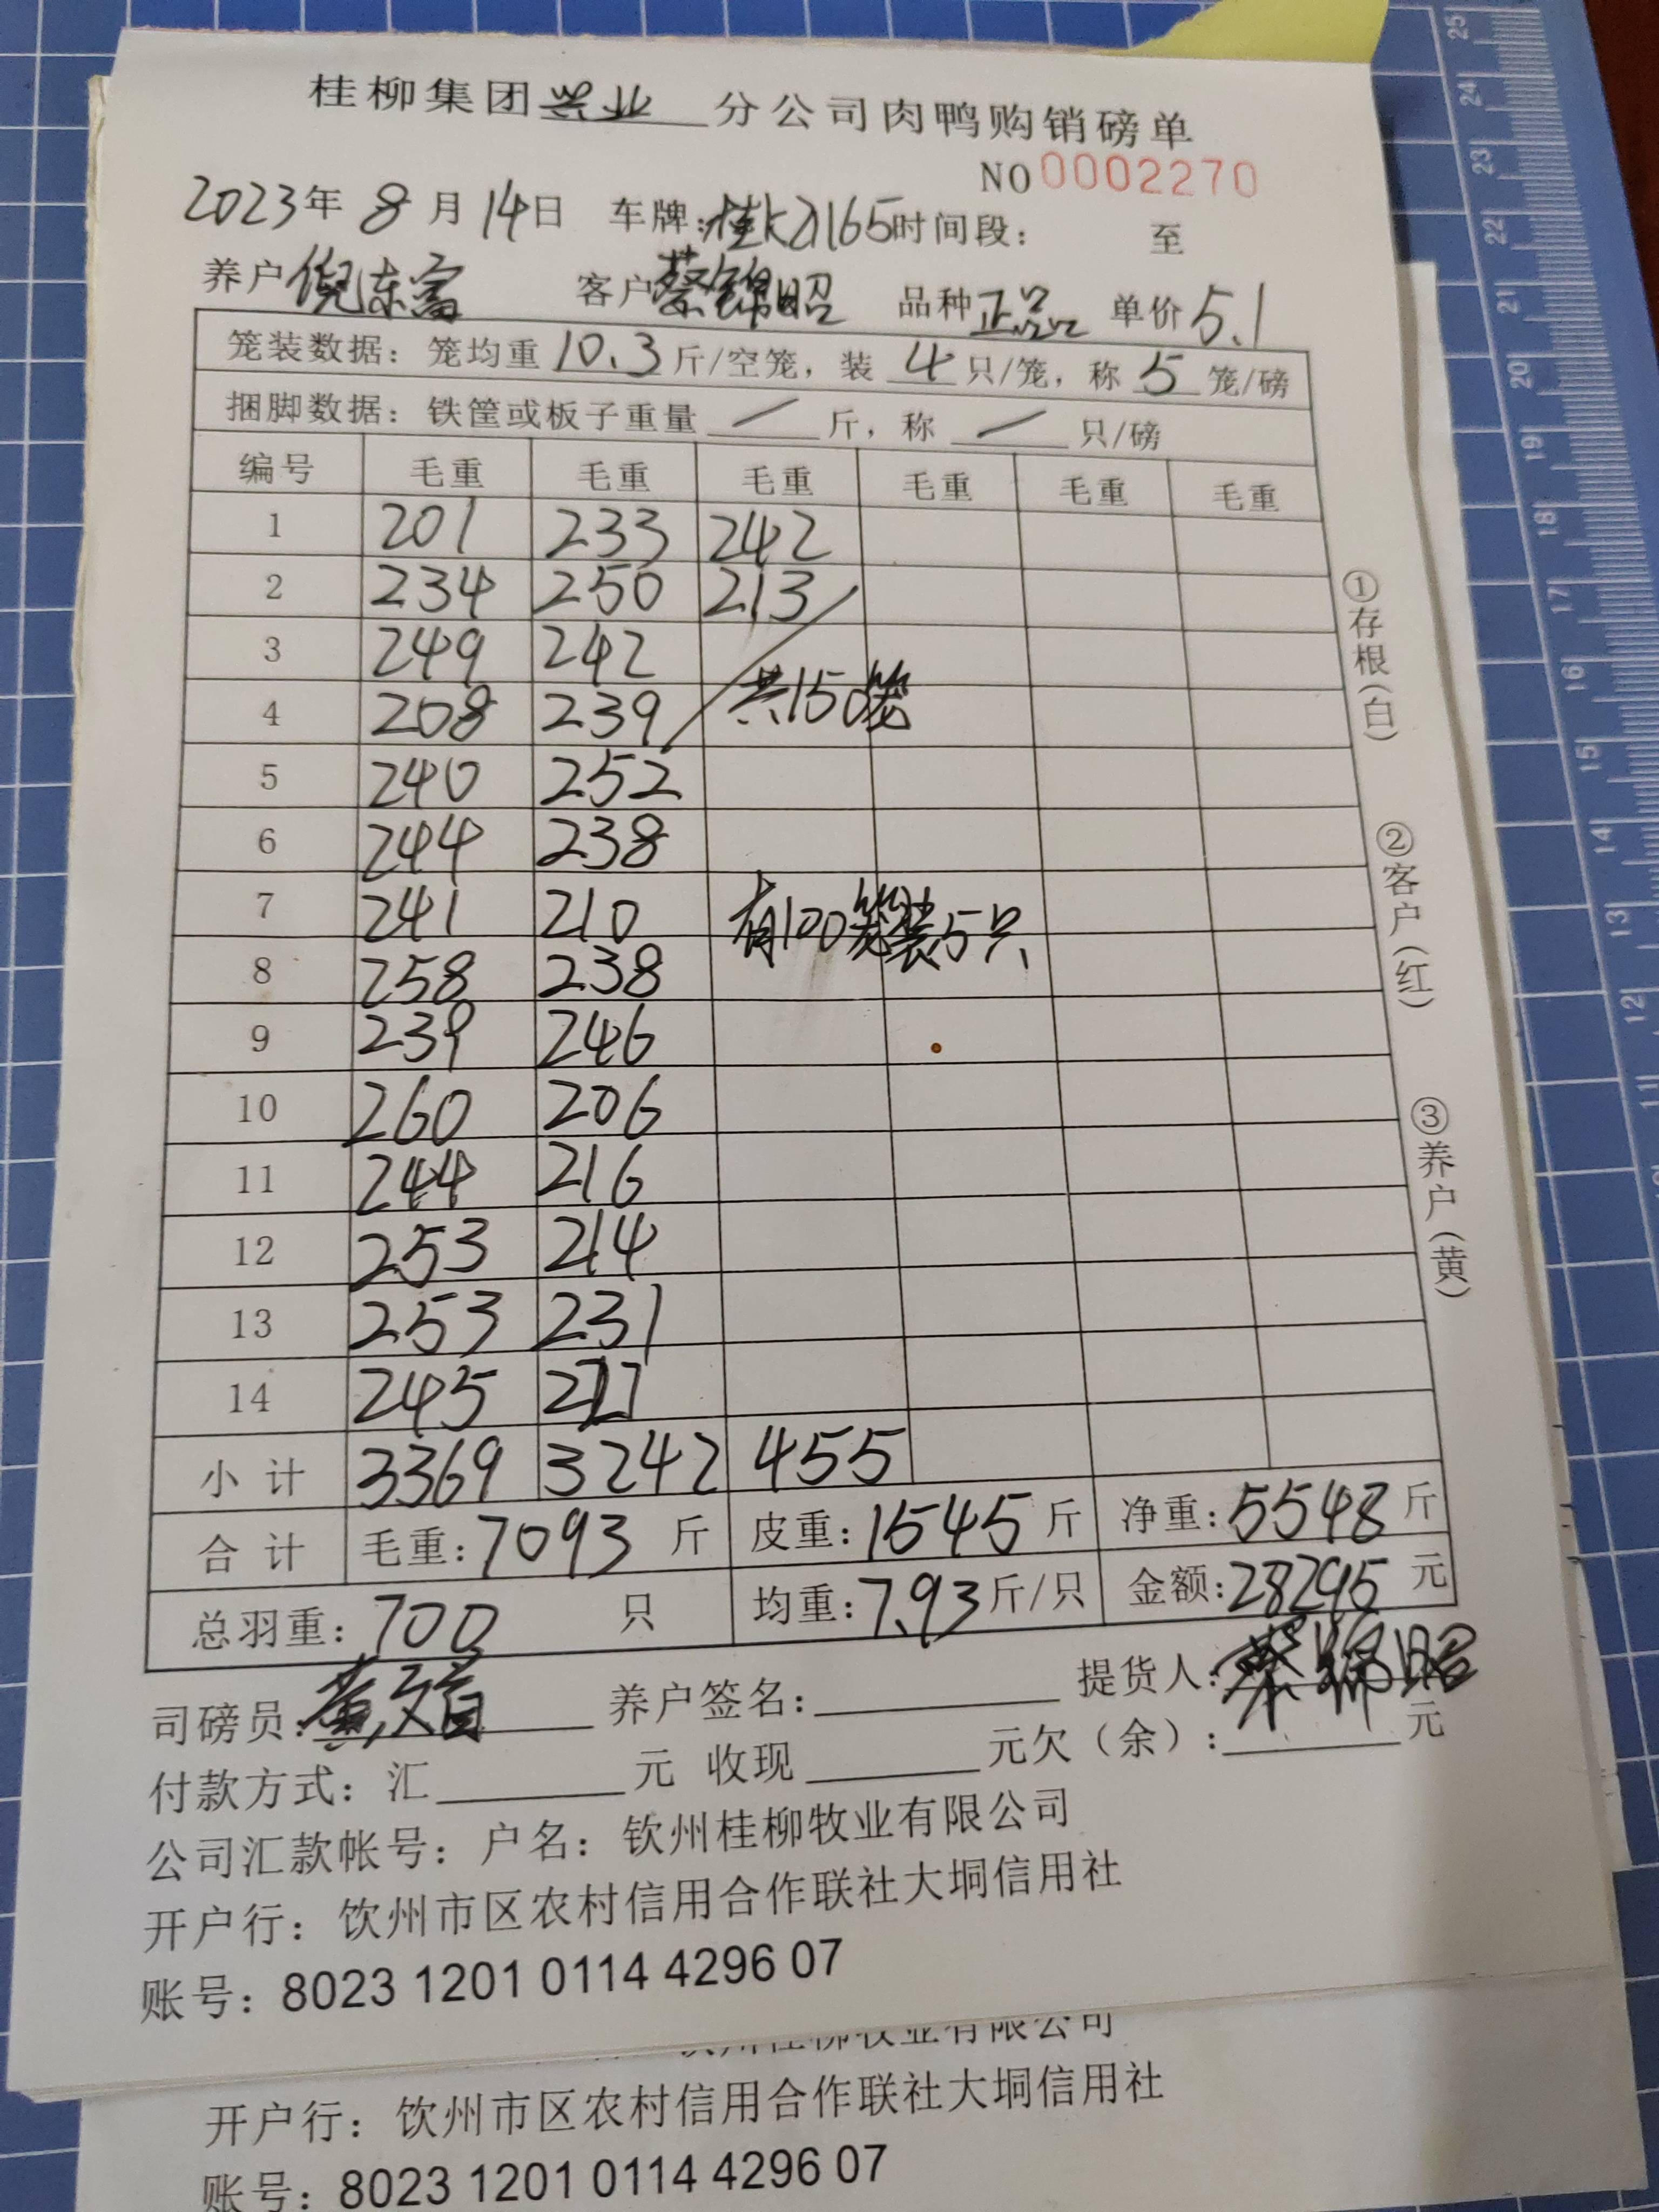 桂柳集团兴业分公司肉鸭购销磅单
NO 0002270
2023年 8 月 14日 车牌:桂K21165时间段: 至
养户 倪东富 客户 蔡锦昭 品种 正品 单价 5.1
笼装数据: 笼均重 10.3 斤/空笼, 装 4 只/笼, 称 5 笼/磅
捆脚数据: 铁筐或板子重量 / 斤, 称 / 只/磅
编号 毛重 毛重 毛重 毛重 毛重 毛重
1 201 233 242
2 234 250 213
3 249 242
4 208 239 共150笼
5 240 252
6 244 238
7 241 210 有100笼装5只
8 258 238
9 239 246
10 260 206
11 244 216
12 253 214
13 253 231
14 245
小计 3369 3242 455
合计 毛重: 7093 斤 皮重: 1545 斤 净重: 5548 斤
总羽重: 700 只 均重: 7.93 斤/只 金额: 28295 元
司磅员: 养户签名: 提货人: 蔡锦昭
付款方式: 汇 元 收现 元欠(余): 元
公司汇款帐号: 户名: 钦州桂柳牧业有限公司
开户行: 钦州市区农村信用合作联社大垌信用社
账号: 8023 1201 0114 4296 07
①存根(白)
②客户(红)
③养户(黄)
钦州桂柳牧业有限公司
开户行: 钦州市区农村信用合作联社大垌信用社
账号: 8023 1201 0114 4296 07
25
24
23
22
21
20
19
18
17
16
15
14
13
12
11